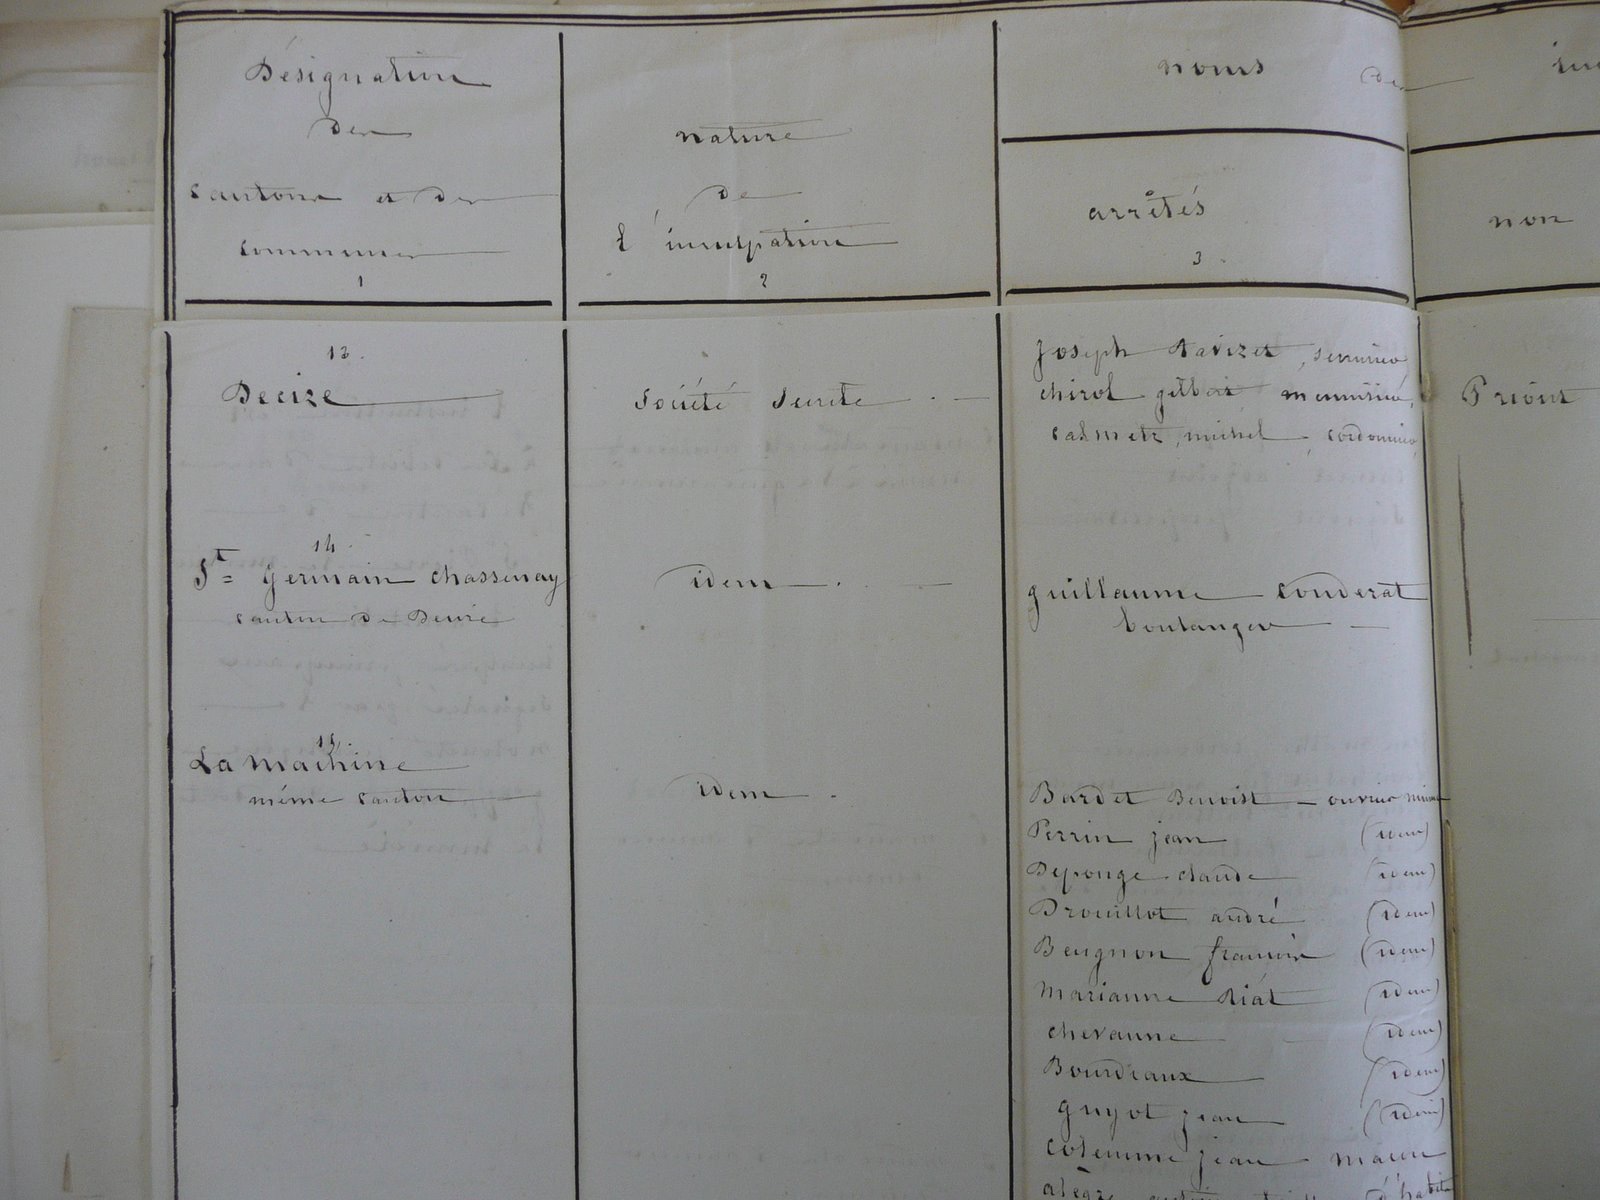 Désignation
des
cantons et des
communes
1
nature
de
l'inculpation
2
noms des
arrêtés
3
non
13.
Decize
Société Secrète
Joseph
chirol gilbert menuisier,
calmetz, michel, cordonnier,
Prioux
14.
St= Germain Chassenay
canton de Decize
idem
guillaume Couderat
boulanger
15.
La Machine
même canton
idem
Bardet Benoist - ouvrier mineur
Perrin jean (idem)
Deponge claude (idem)
Drouillot andré (idem)
Beugnon françois (idem)
Marianne Riat (idem)
chevanne (idem)
Bourdeaux (idem)
guyot jean (idem)
jean